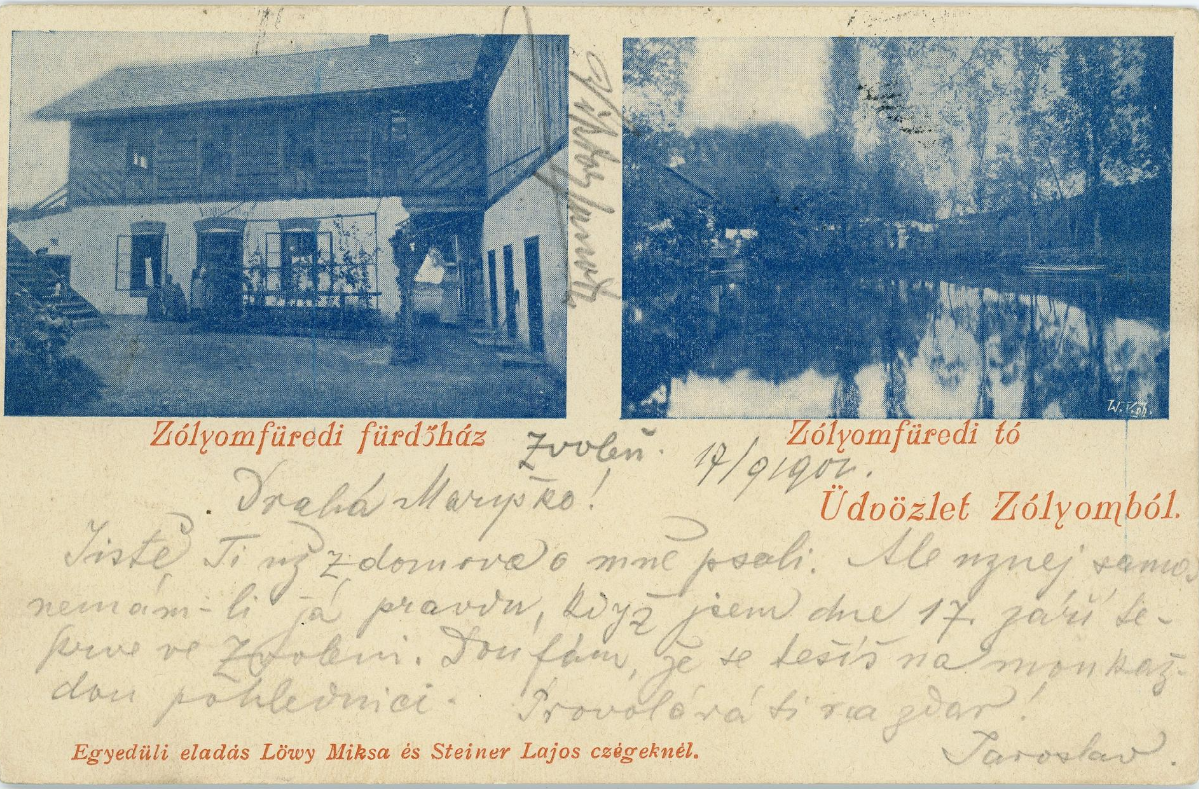 Zólyomfüredi fürdőház
Zólyomfüredi tó
Zvoleň. 17/9 1901.
Üdvözlet Zólyomból.
Drahá Maryško!
Jistě Ti už z domova o mně psali. Ale uznej sama,
nemám-li já pravdu, když jsem dne 17. září te-
prve ve Zvoleni. Doufám, že se těšíš na mou kaž-
dou pohlednici. Provolává ti nazdar!
Jaroslav.
Egyedüli eladás Löwy Miksa és Steiner Lajos czégeknél.